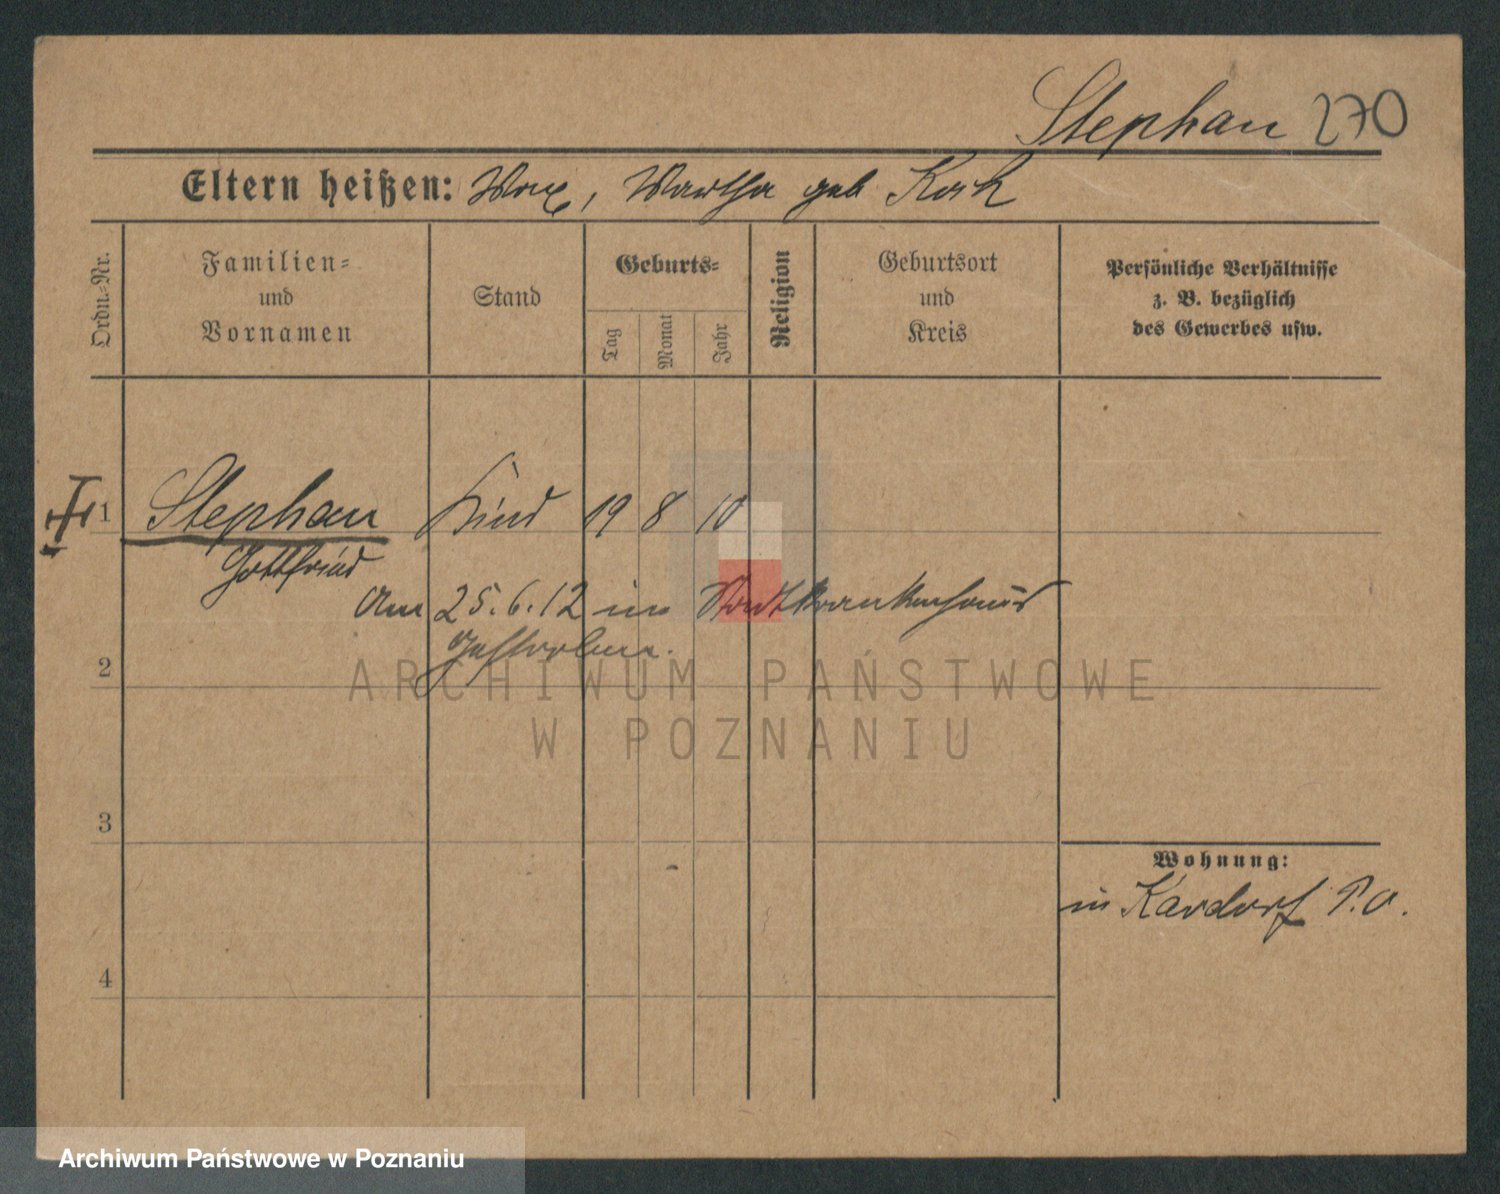 Stephan 270
Eltern heißen: Max, Martha geb. Kork
Ordn.-Nr.
Familien-
und
Vornamen
Stand
Geburts-
Tag
Monat
Jahr
Religion
Geburtsort
und
Kreis
Persönliche Verhältnisse
z. B. bezüglich
des Gewerbes usw.
1 Stephan Kind 19 8 10
Gottfried
Am 25.6.12 im Stadtkrankenhaus
gestorben.
2
ARCHIWUM PAŃSTWOWE
W POZNANIU
3
Wohnung:
in Kardorf P.O.
4
Archiwum Państwowe w Poznaniu